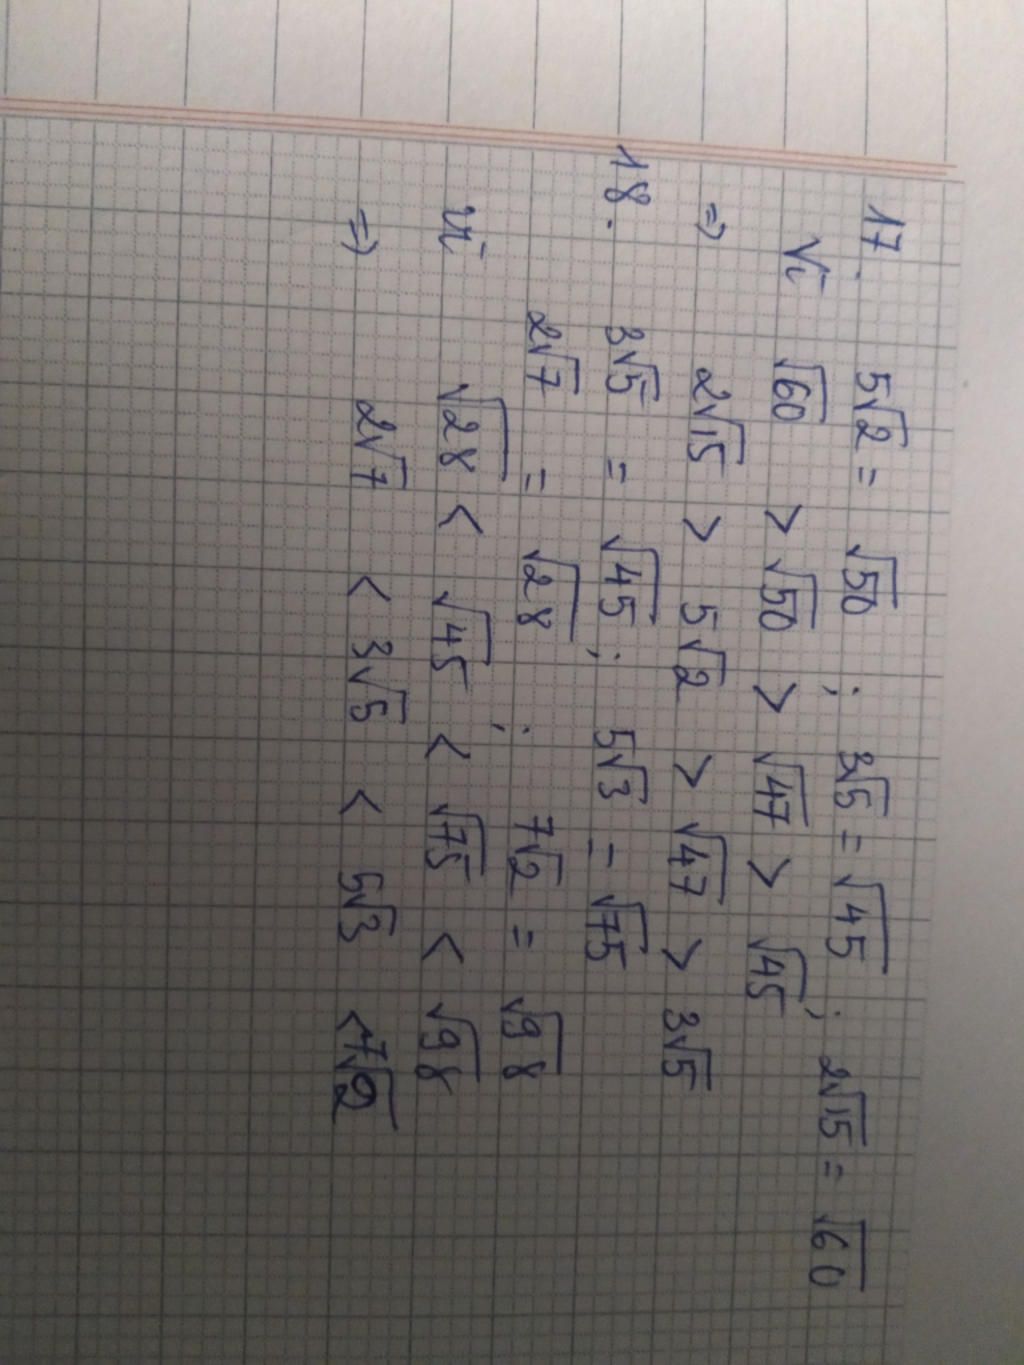 17. 5√2 = √50 ; 3√5 = √45 ; 2√15 = √60
Vì √60 > √50 > √47 > √45
=> 2√15 > 5√2 > √47 > 3√5
18. 3√5 = √45 ; 5√3 = √75
2√7 = √28 ; 7√2 = √98
vì √28 < √45 < √75 < √98
=> 2√7 < 3√5 < 5√3 < 7√2